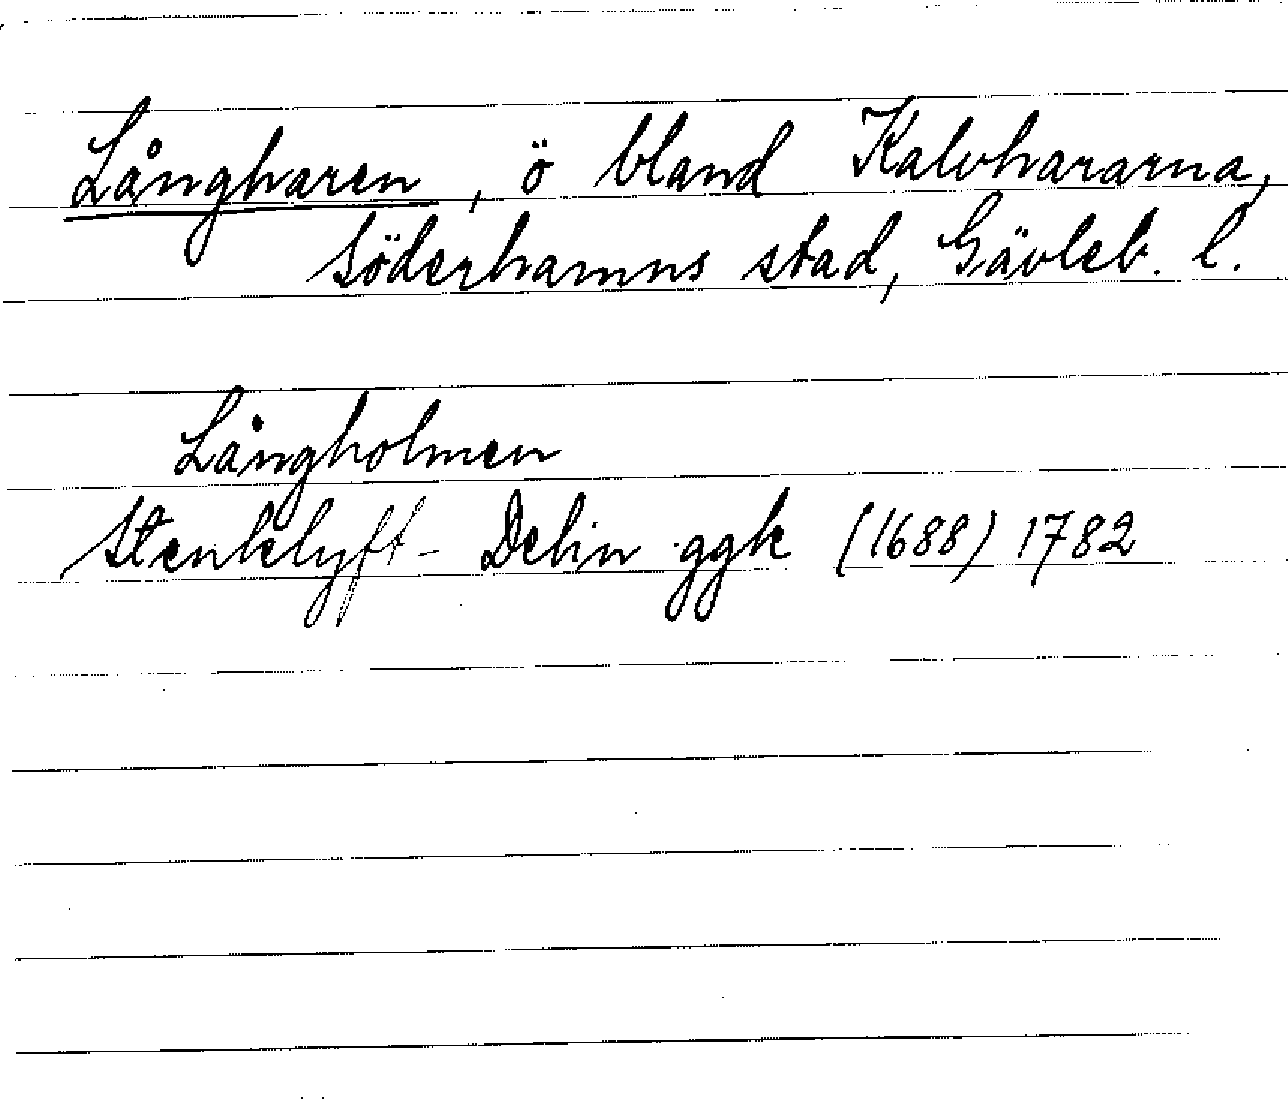 Långharen, ö bland Kalvhararna,
Söderhamns stad, Gävleb. l.
Långholmen
Stenklyft- Delin ggk (1688) 1782